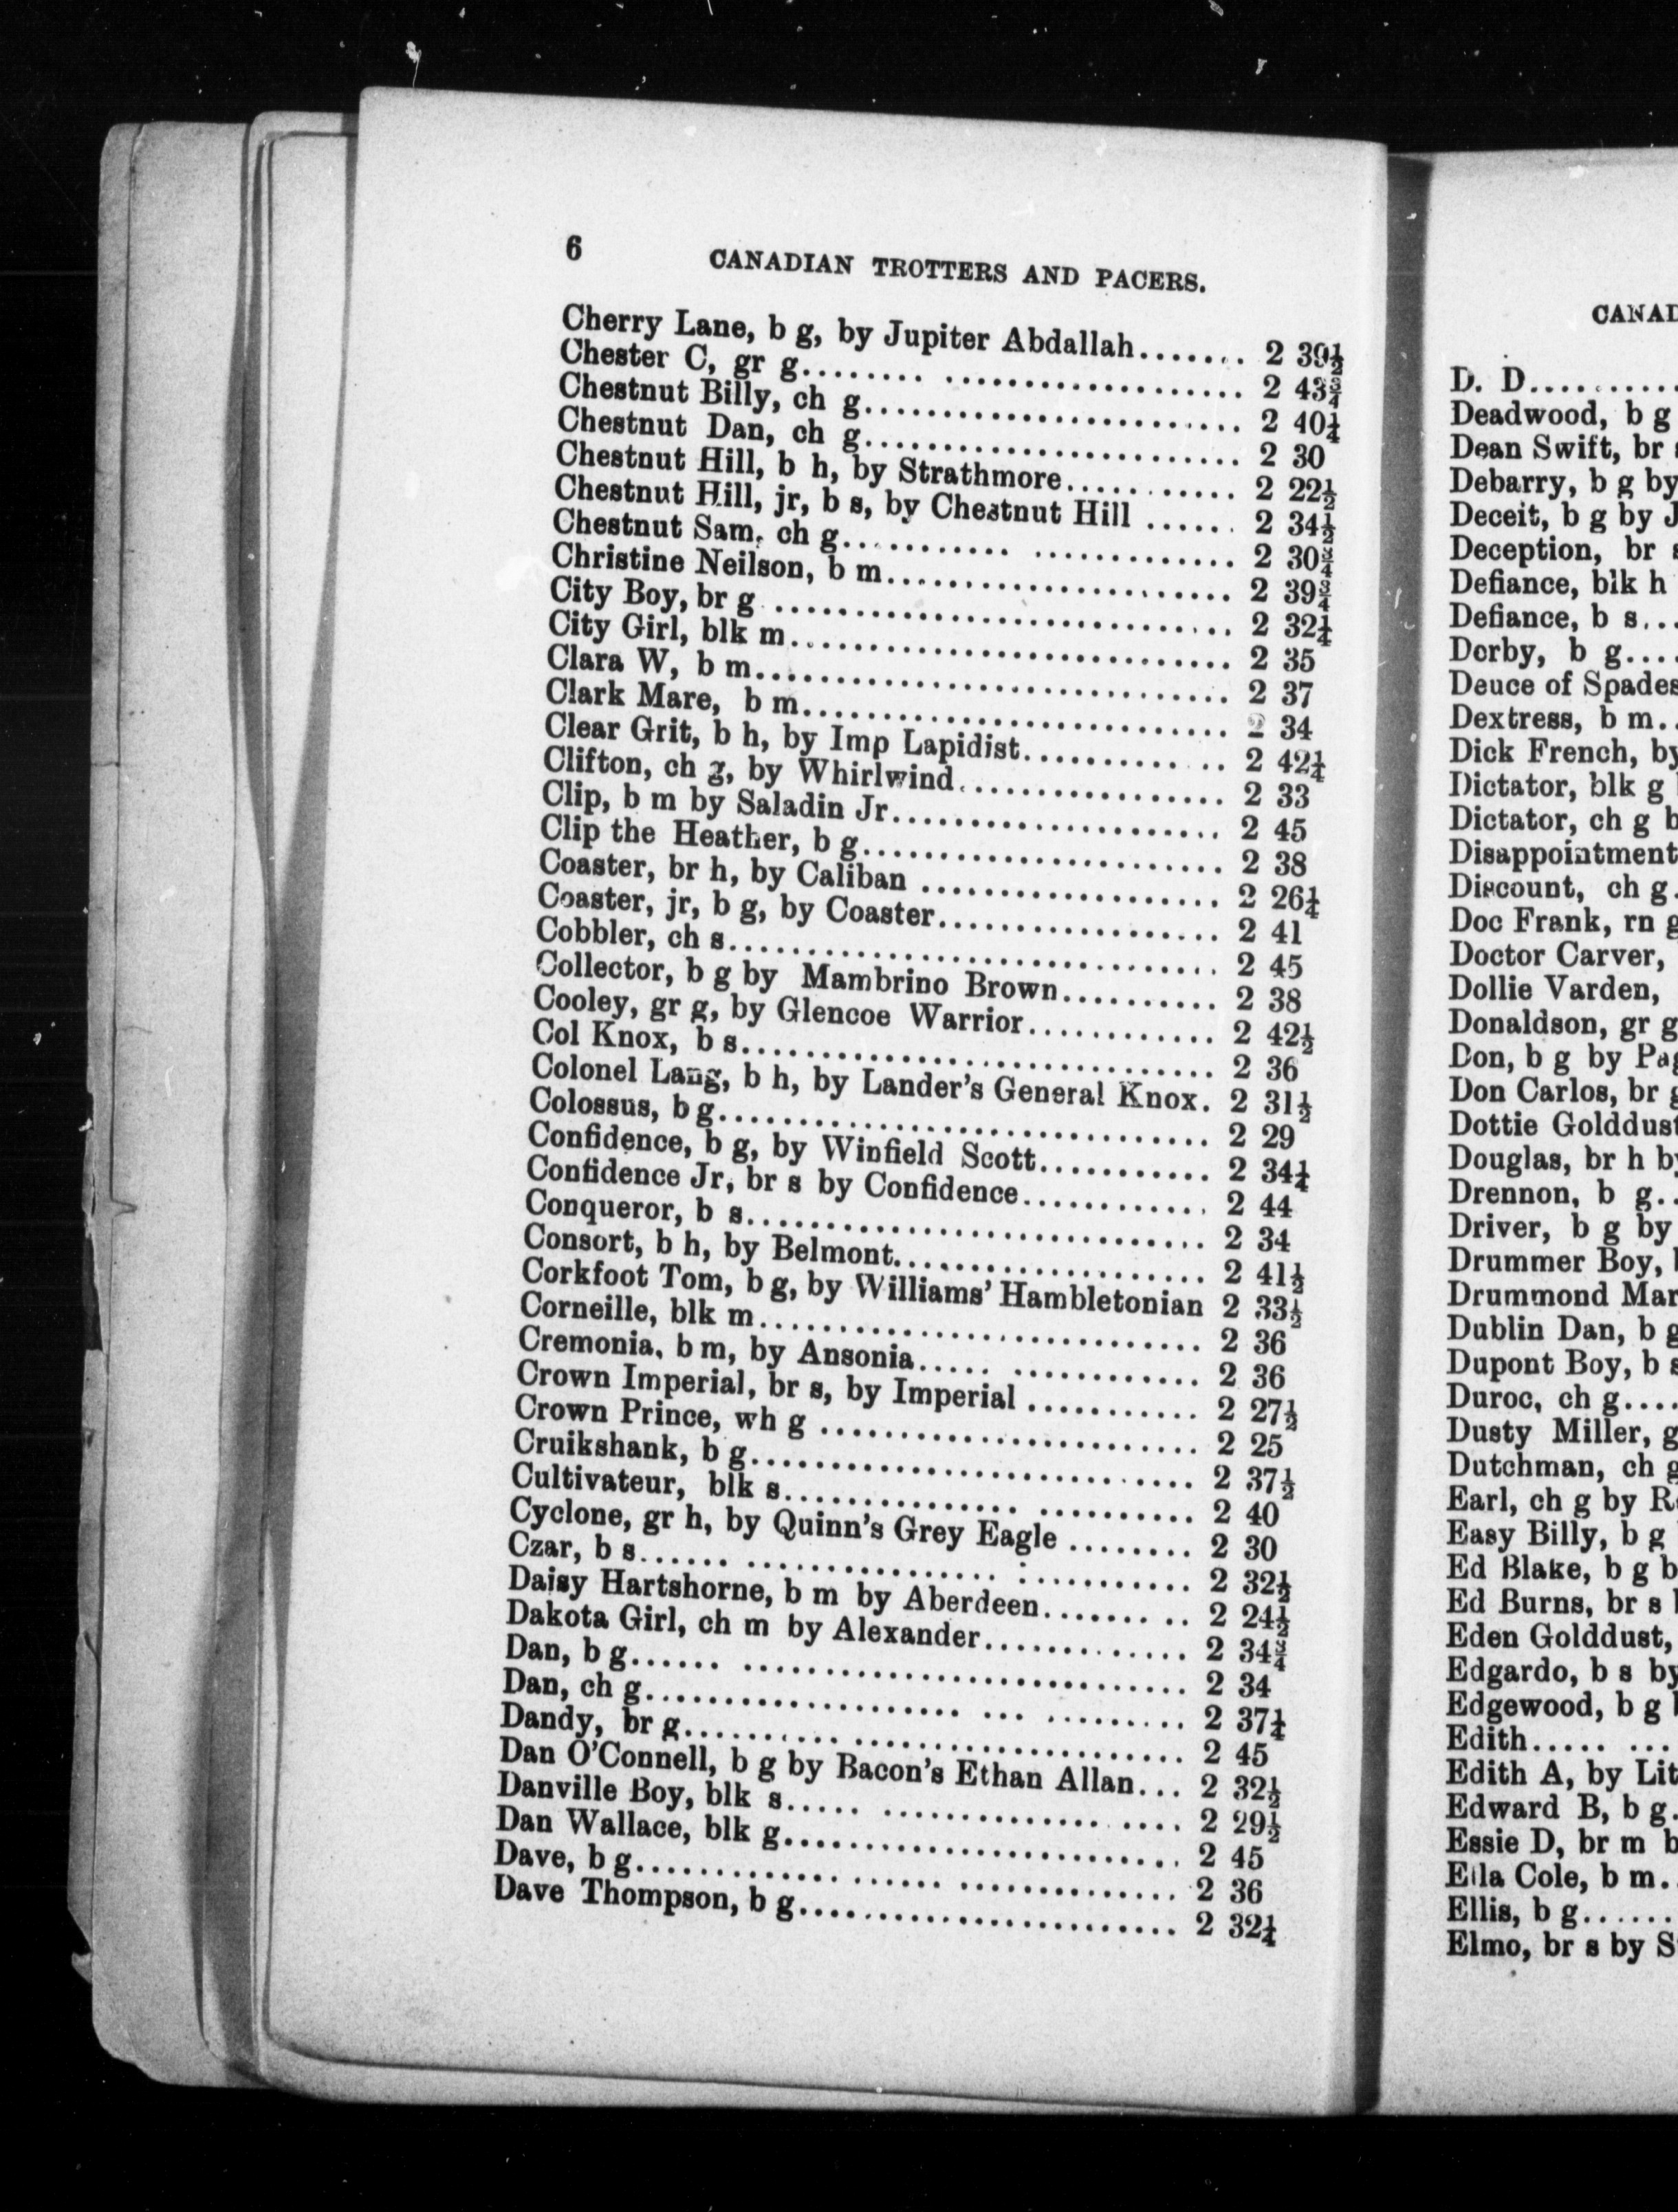 6
CANADIAN TROTTERS AND PACERS.
Cherry Lane, b g, by Jupiter Abdallah....... 2 39½
Chester C, gr g........ ................... 2 43¾
Chestnut Billy, ch g........................ 2 40¼
Chestnut Dan, ch g........................ 2 30
Chestnut Hill, b h, by Strathmore........... 2 22½
Chestnut Hill, jr, b s, by Chestnut Hill ...... 2 34½
Chestnut Sam, ch g........... ............. 2 30¾
Christine Neilson, b m...................... 2 39¾
City Boy, br g ............................. 2 32¼
City Girl, blk m............................ 2 35
Clara W, b m.............................. 2 37
Clark Mare, b m........................... 2 34
Clear Grit, b h, by Imp Lapidist............. 2 42¼
Clifton, ch g, by Whirlwind................. 2 33
Clip, b m by Saladin Jr..................... 2 45
Clip the Heather, b g....................... 2 38
Coaster, br h, by Caliban ................... 2 26¼
Coaster, jr, b g, by Coaster.................. 2 41
Cobbler, ch s............................... 2 45
Collector, b g by Mambrino Brown.......... 2 38
Cooley, gr g, by Glencoe Warrior............ 2 42½
Col Knox, b s.............................. 2 36
Colonel Lang, b h, by Lander's General Knox. 2 31½
Colossus, b g............................... 2 29
Confidence, b g, by Winfield Scott........... 2 34¼
Confidence Jr, br s by Confidence............ 2 44
Conqueror, b s............................. 2 34
Consort, b h, by Belmont.................... 2 41½
Corkfoot Tom, b g, by Williams' Hambletonian 2 33½
Corneille, blk m............................ 2 36
Cremonia, b m, by Ansonia..... ............ 2 36
Crown Imperial, br s, by Imperial ........... 2 27½
Crown Prince, wh g ........................ 2 25
Cruikshank, b g............................ 2 37½
Cultivateur, blk s............... .......... 2 40
Cyclone, gr h, by Quinn's Grey Eagle ........ 2 30
Czar, b s...... ................ ........... 2 32½
Daisy Hartshorne, b m by Aberdeen....... .. 2 24½
Dakota Girl, ch m by Alexander............. 2 34¾
Dan, b g...... ............................ 2 34
Dan, ch g.................... ... ......... 2 37¼
Dandy, br g.......... ..................... 2 45
Dan O'Connell, b g by Bacon's Ethan Allan... 2 32½
Danville Boy, blk s..... .............. .... 2 29½
Dan Wallace, blk g......................... 2 45
Dave, b g............. ...... .............. 2 36
Dave Thompson, b g........................ 2 32¼
CANAD
D. D..........
Deadwood, b g
Dean Swift, br s
Debarry, b g by
Deceit, b g by J
Deception, br s
Defiance, blk h
Defiance, b s...
Derby, b g....
Deuce of Spades
Dextress, b m..
Dick French, by
Dictator, blk g
Dictator, ch g b
Disappointment
Discount, ch g.
Doc Frank, rn g
Doctor Carver,
Dollie Varden,
Donaldson, gr g
Don, b g by Pag
Don Carlos, br g
Dottie Golddust
Douglas, br h by
Drennon, b g..
Driver, b g by
Drummer Boy, b
Drummond Mar
Dublin Dan, b g
Dupont Boy, b s
Duroc, ch g....
Dusty Miller, g
Dutchman, ch g
Earl, ch g by R
Easy Billy, b g
Ed Blake, b g b
Ed Burns, br s b
Eden Golddust,
Edgardo, b s by
Edgewood, b g b
Edith..... ...
Edith A, by Lit
Edward B, b g.
Essie D, br m b
Ella Cole, b m..
Ellis, b g......
Elmo, br s by S